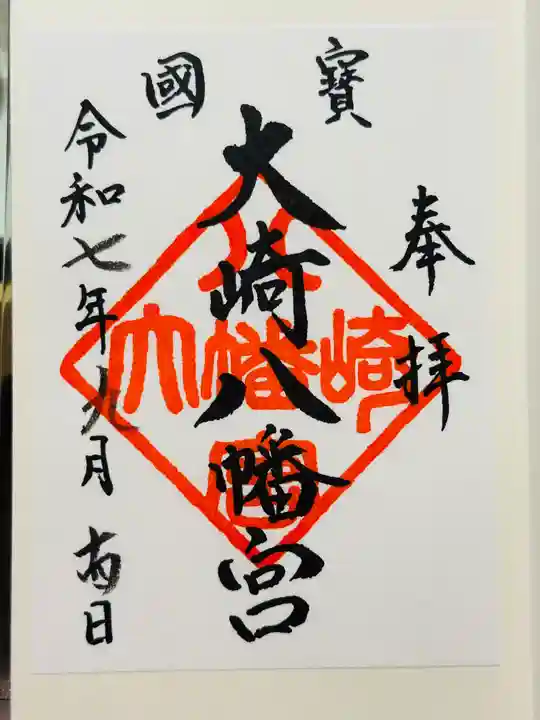 奉拝
寶國
大崎八幡宮
大崎八幡宮
令和七年九月日